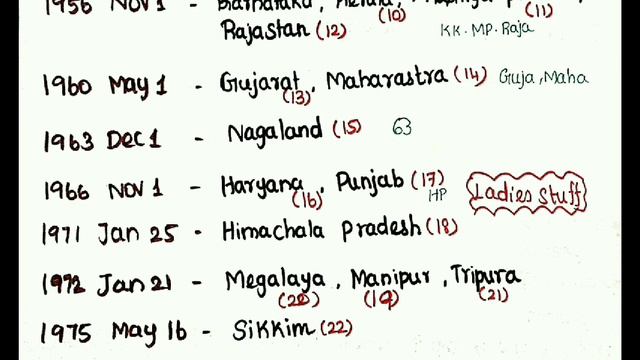 1956 NOV 1 - Karnataka, Kerala, Madhya P
(10) (11)
Rajastan (12) KK. MP. Raja
1960 May 1 - Gujarat, Maharastra (14) Guja, Maha
(13)
1963 Dec 1 - Nagaland (15) 63
1966 NOV 1 - Haryana, Punjab (17)
(16) HP Ladies Stuff
1971 Jan 25 - Himachala pradesh (18)
1972 Jan 21 - Megalaya, Manipur, Tripura
(20) (19) (21)
1975 May 16 - Sikkim (22)